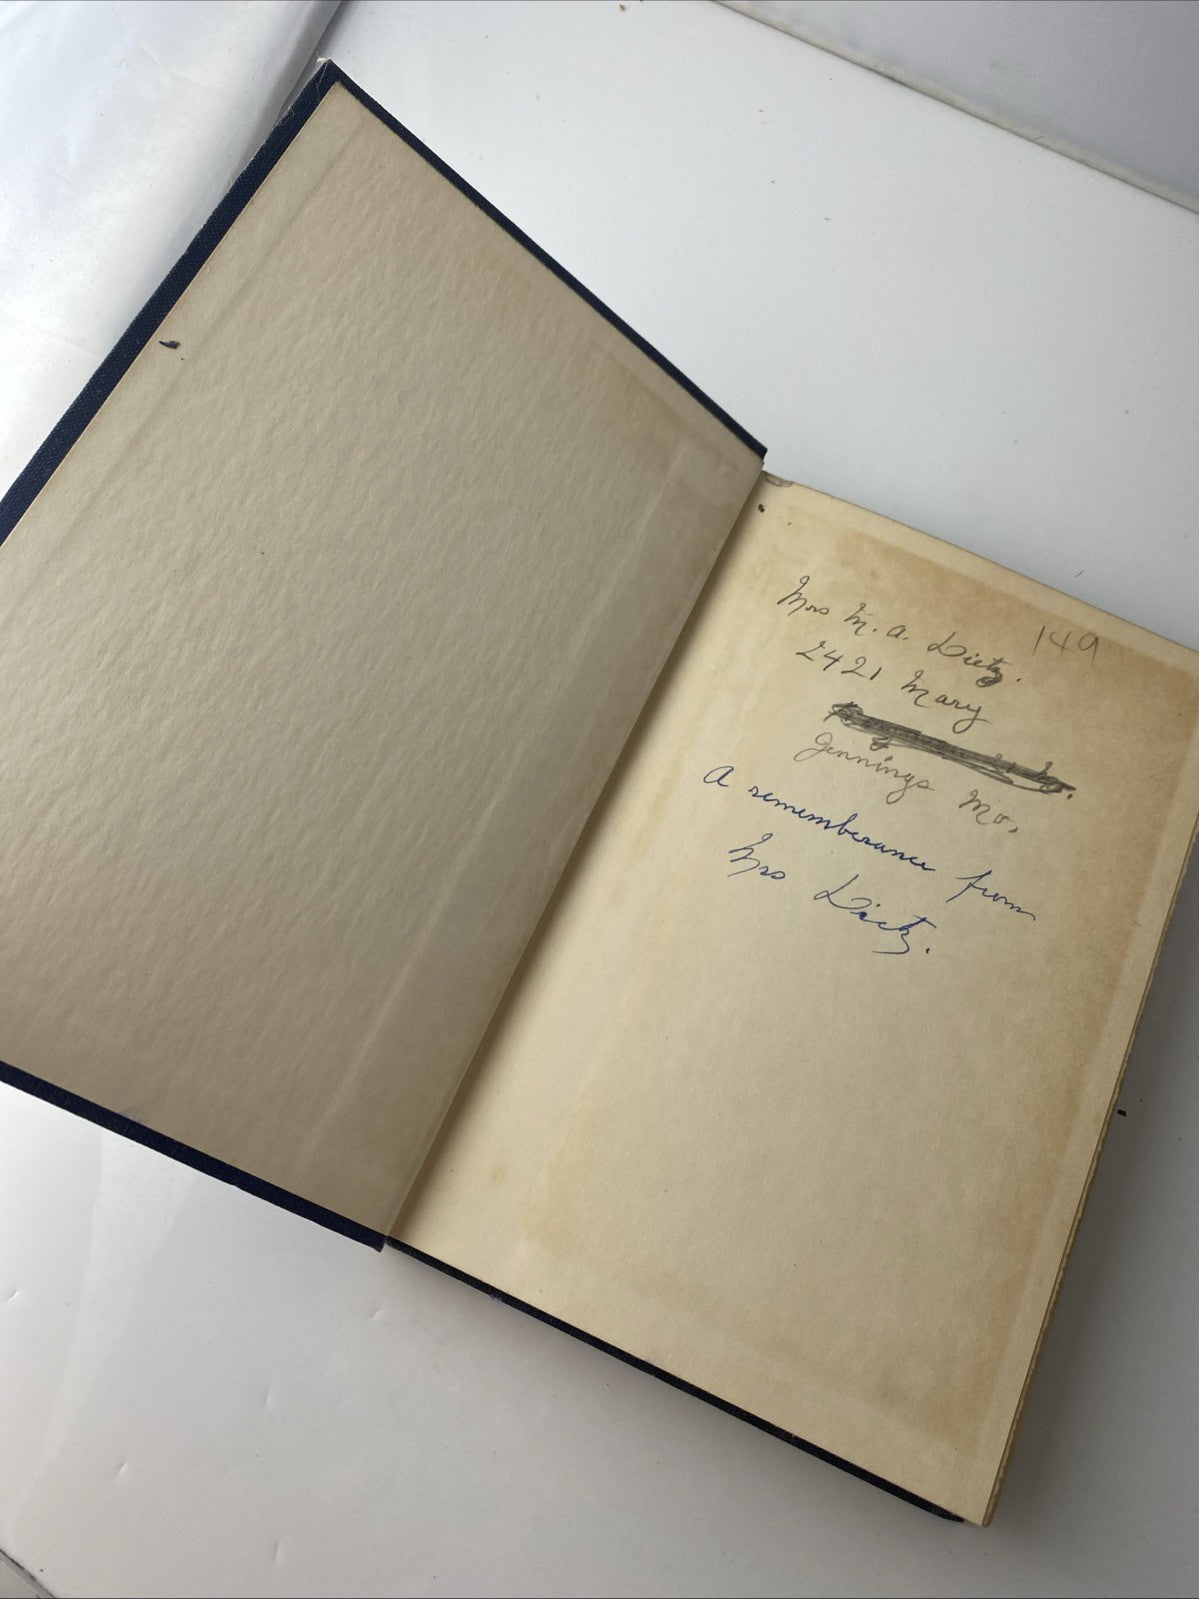 Mrs M. A. Dietz. 149
2421 Mary
Jennings Mo.
A rememberance from
Mrs Dietz.